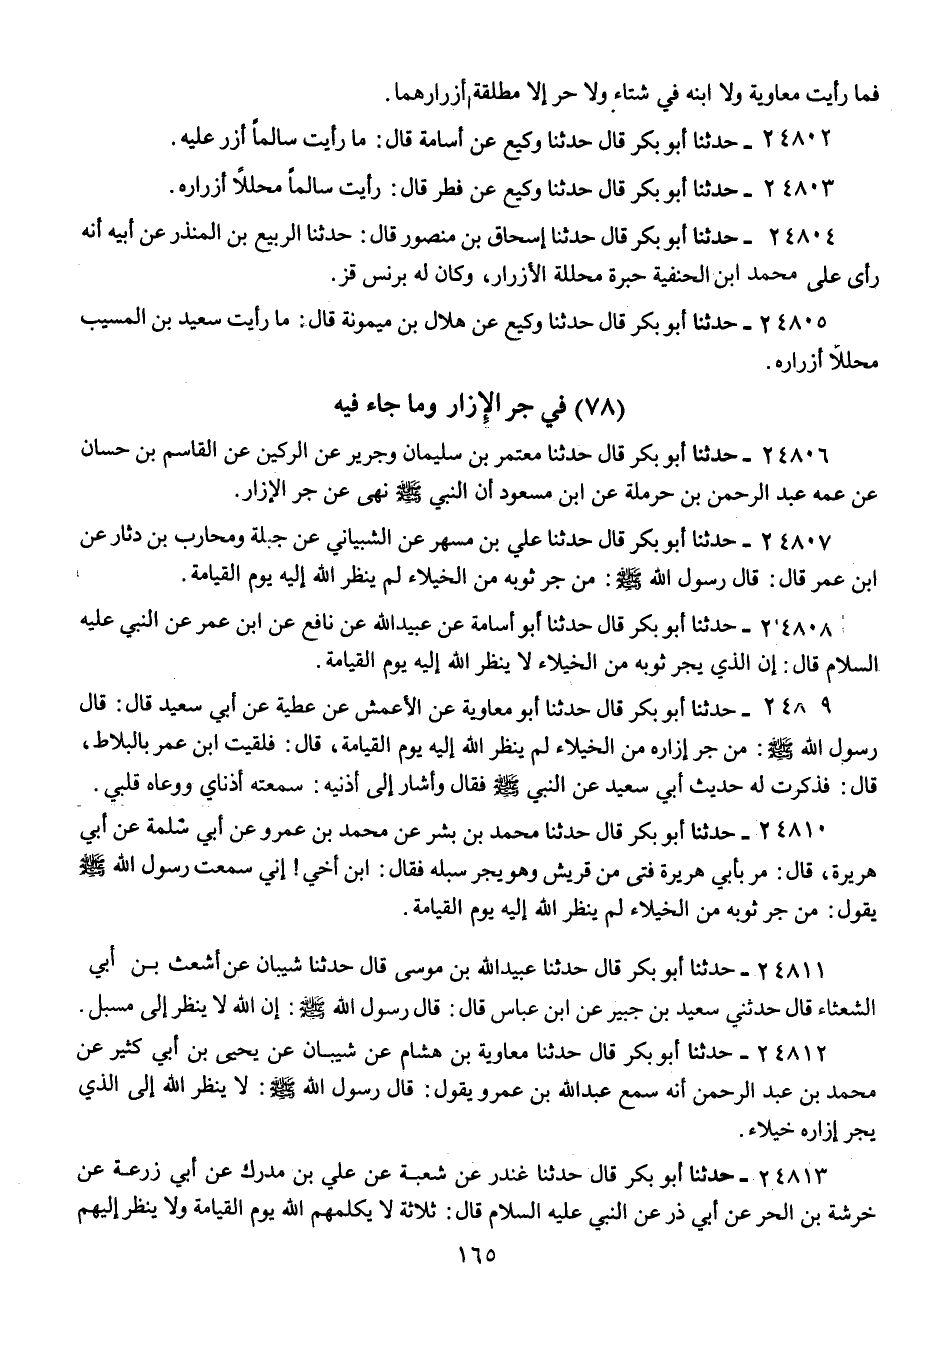 فما رأيت معاوية ولا ابنه في شتاء ولا حر إلا مطلقة أزرارهما.
٢٤٨٠٢ ـ حدثنا أبو بكر قال حدثنا وكيع عن أسامة قال: ما رأيت سالماً أزر عليه.
٢٤٨٠٣ ـ حدثنا أبو بكر قال حدثنا وكيع عن فطر قال: رأيت سالماً محللاً أزراره.
٢٤٨٠٤ ـ حدثنا أبو بكر قال حدثنا إسحاق بن منصور قال: حدثنا الربيع بن المنذر عن أبيه أنه
رأى على محمد ابن الحنفية حبرة محللة الأزرار، وكان له برنس قز.
٢٤٨٠٥ ـ حدثنا أبو بكر قال حدثنا وكيع عن هلال بن ميمونة قال: ما رأيت سعيد بن المسيب
محللاً أزراره.
(٧٨) في جر الإزار وما جاء فيه
٢٤٨٠٦ ـ حدثنا أبو بكر قال حدثنا معتمر بن سليمان وجرير عن الركين عن القاسم بن حسان
عن عمه عبد الرحمن بن حرملة عن ابن مسعود أن النبي ﷺ نهى عن جر الإزار.
٢٤٨٠٧ ـ حدثنا أبو بكر قال حدثنا علي بن مسهر عن الشيباني عن جبلة ومحارب بن دثار عن
ابن عمر قال: قال رسول الله ﷺ: من جر ثوبه من الخيلاء لم ينظر الله إليه يوم القيامة.
٢٤٨٠٨ ـ حدثنا أبو بكر قال حدثنا أبو أسامة عن عبيدالله عن نافع عن ابن عمر عن النبي عليه
السلام قال: إن الذي يجر ثوبه من الخيلاء لا ينظر الله إليه يوم القيامة.
٢٤٨٠٩ ـ حدثنا أبو بكر قال حدثنا أبو معاوية عن الأعمش عن عطية عن أبي سعيد قال: قال
رسول الله ﷺ: من جر إزاره من الخيلاء لم ينظر الله إليه يوم القيامة، قال: فلقيت ابن عمر بالبلاط،
قال: فذكرت له حديث أبي سعيد عن النبي ﷺ فقال وأشار إلى أذنيه: سمعته أذناي ووعاه قلبي.
٢٤٨١٠ ـ حدثنا أبو بكر قال حدثنا محمد بن بشر عن محمد بن عمرو عن أبي سلمة عن أبي
هريرة، قال: مر بأبي هريرة فتى من قريش وهو يجر سبله فقال: ابن أخي! إني سمعت رسول الله ﷺ
يقول: من جر ثوبه من الخيلاء لم ينظر الله إليه يوم القيامة.
٢٤٨١١ ـ حدثنا أبو بكر قال حدثنا عبيدالله بن موسى قال حدثنا شيبان عن أشعث بن أبي
الشعثاء قال حدثني سعيد بن جبير عن ابن عباس قال: قال رسول الله ﷺ: إن الله لا ينظر إلى مسبل.
٢٤٨١٢ ـ حدثنا أبو بكر قال حدثنا معاوية بن هشام عن شيبان عن يحيى بن أبي كثير عن
محمد بن عبد الرحمن أنه سمع عبدالله بن عمرو يقول: قال رسول الله ﷺ: لا ينظر الله إلى الذي
يجر إزاره خيلاء.
٢٤٨١٣ ـ حدثنا أبو بكر قال حدثنا غندر عن شعبة عن علي بن مدرك عن أبي زرعة عن
خرشة بن الحر عن أبي ذر عن النبي عليه السلام قال: ثلاثة لا يكلمهم الله يوم القيامة ولا ينظر إليهم
١٦٥